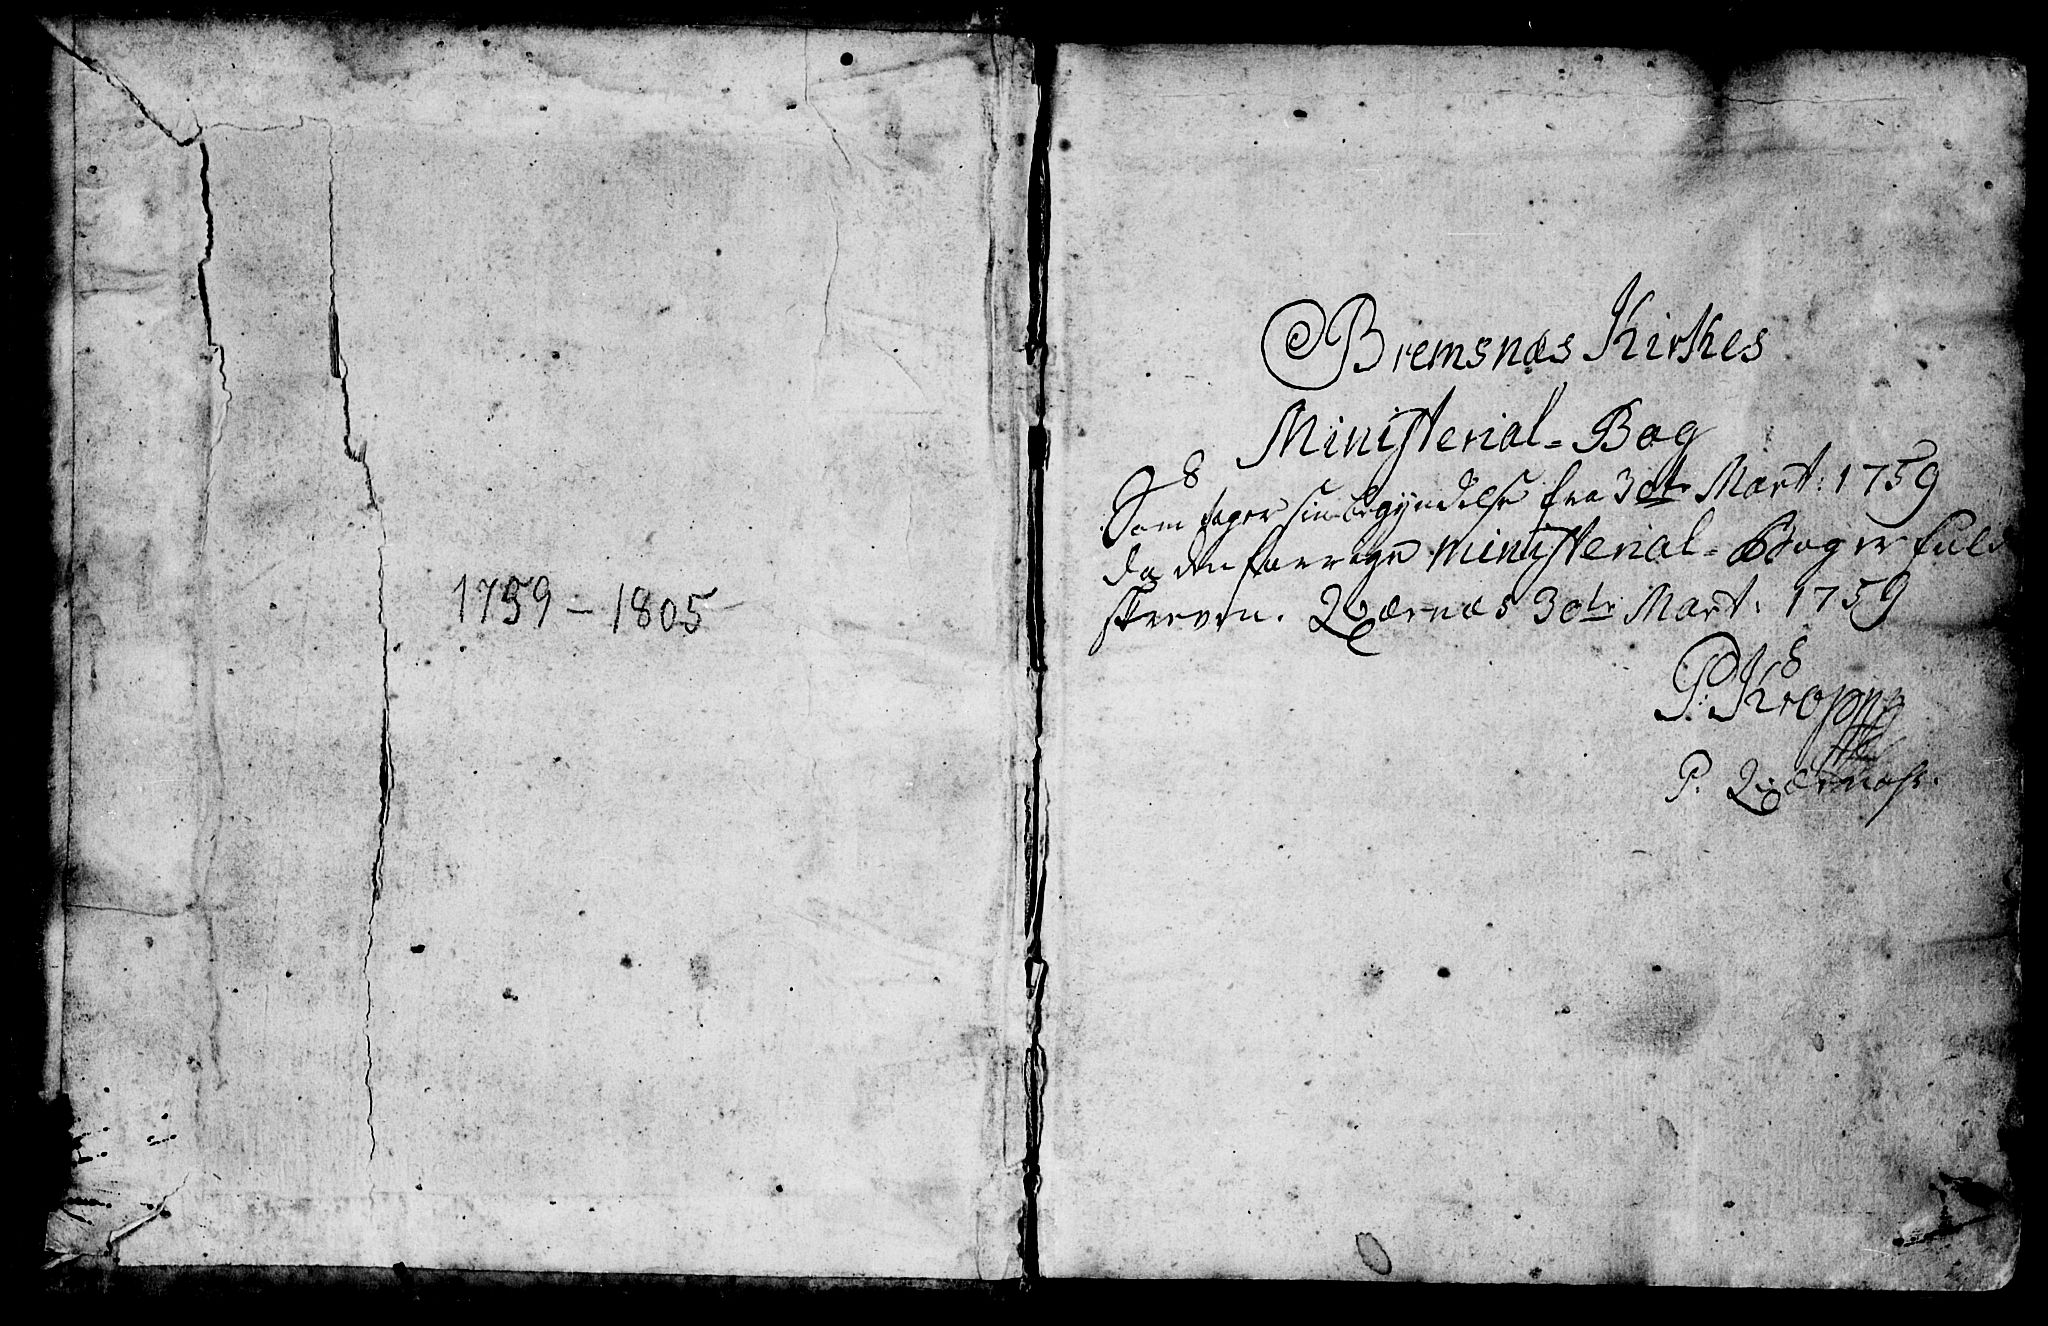 1759 - 1805
Bremsnæs Kirkes
Ministerial-Bog
Som tager sin begyndelse fra 30te Mart: 1759
da den forrige Ministerial-Bog er fuld
skreven. Qværnæs 30te Mart: 1759
P: Kropp
P. Qværnæs.